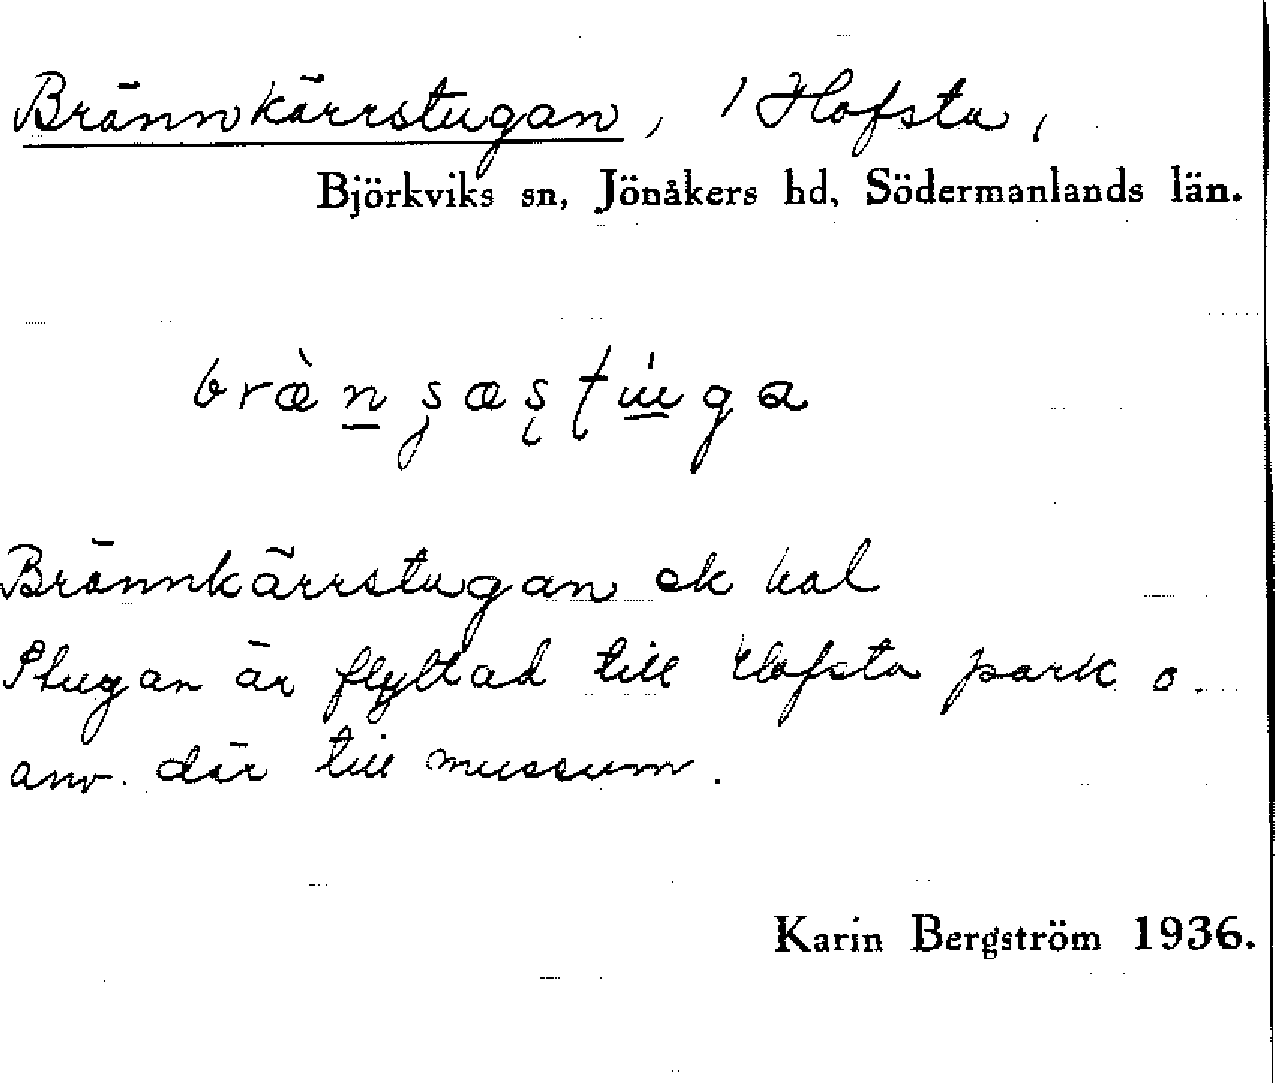 Brännkärrstugan, 1 Hofsta,
Björkviks sn, Jönåkers hd, Södermanlands län.
Brännkärrstugan ek kal
Stugan är flyttad till Hofsta park o.
anv. där till mussum.
Karin Bergström 1936.